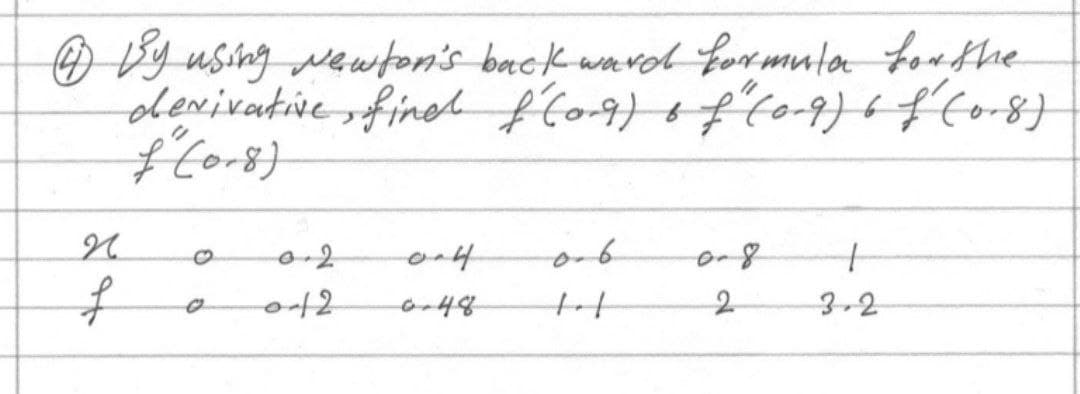 ④ By using Newton's backward formula for the
derivative, find f'(0.9) 6 f"(0.9) 6 f'(0.8)
f"(0.8)
x 0 0.2 0.4 0.6 0.8 1
f 0 0.12 0.48 1.1 2 3.2